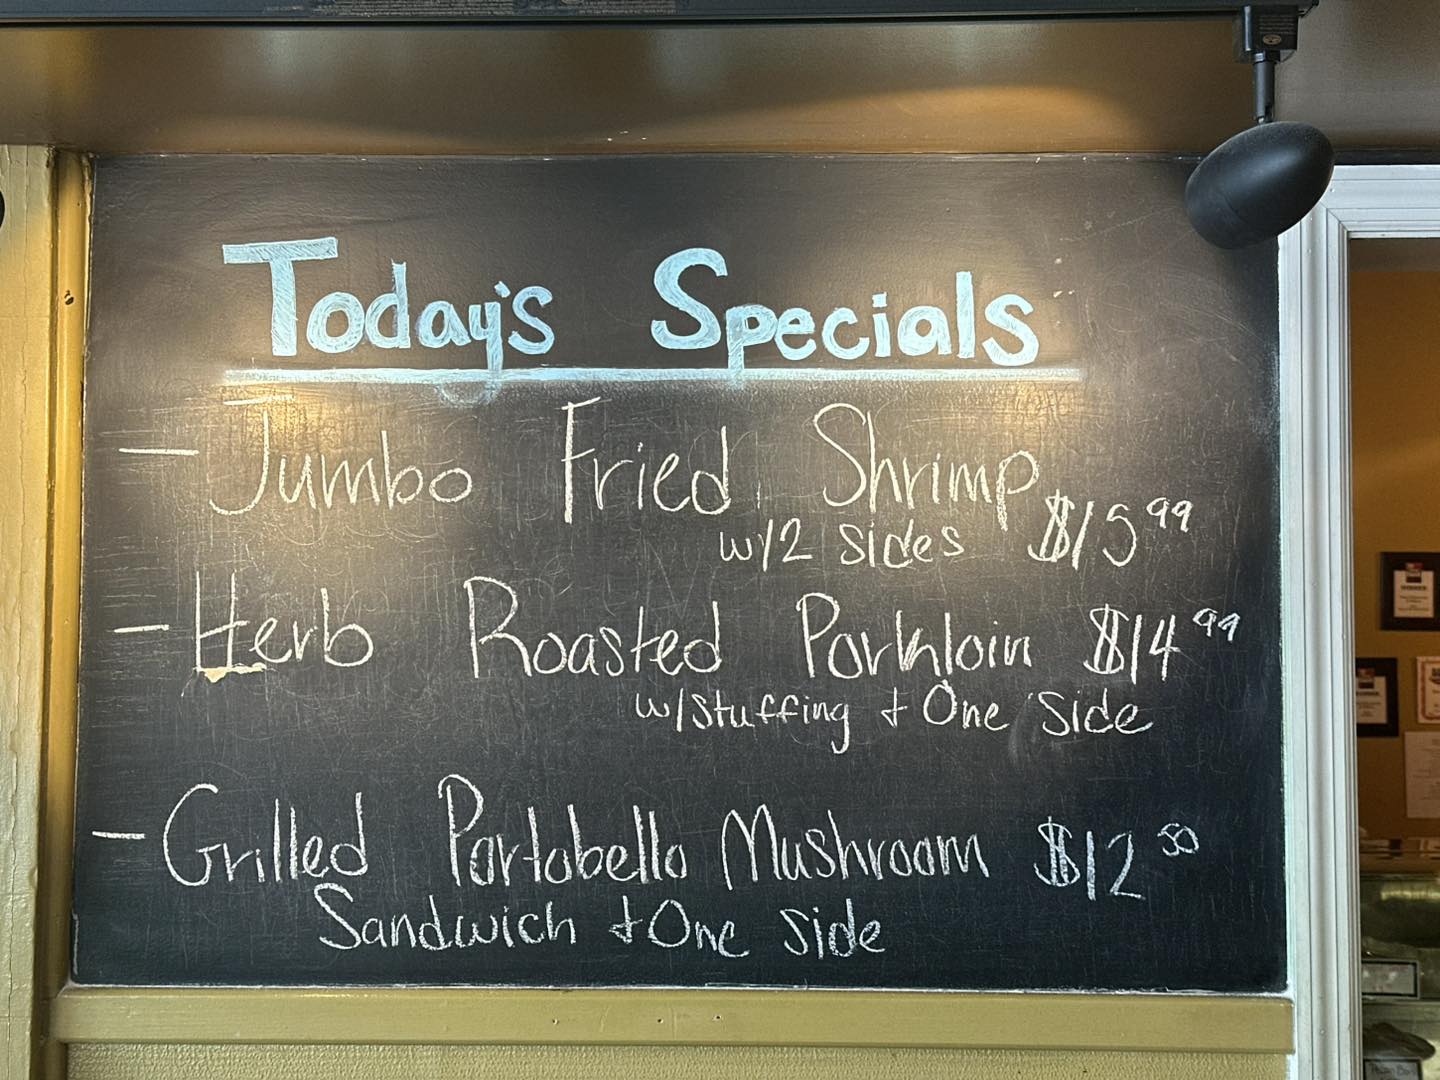 Today's Specials
- Jumbo Fried Shrimp
w/2 sides $15.99
- Herb Roasted Porkloin $14.99
w/stuffing + One side
- Grilled Portobello Mushroom $12.50
Sandwich + One side